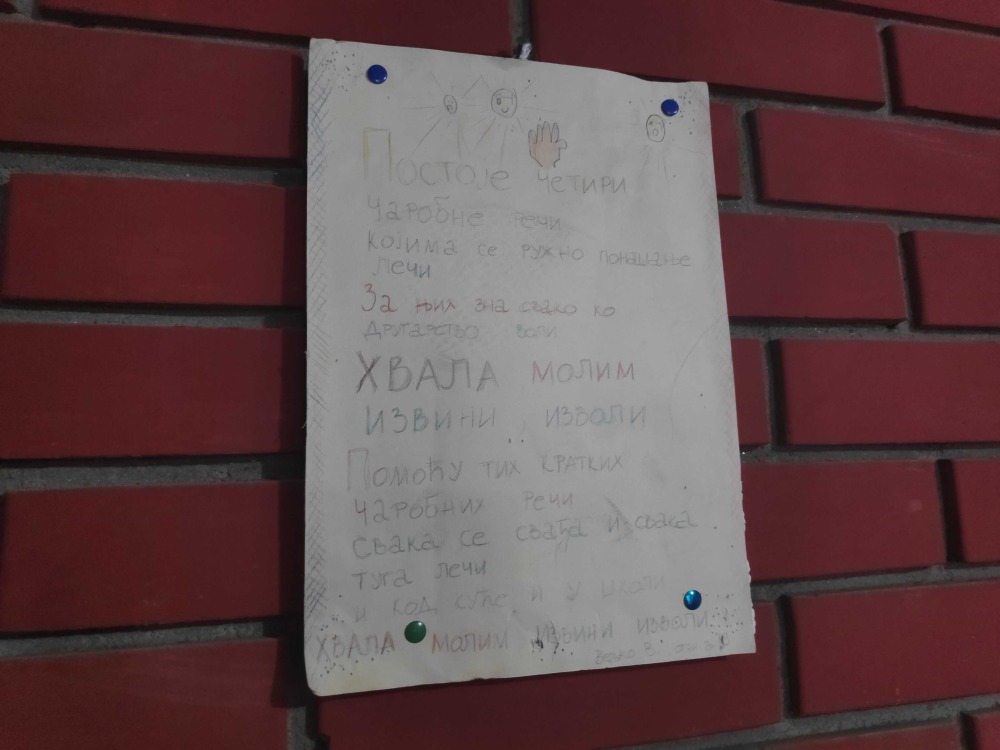 Постоје четири
чаробне речи
којима се ружно понашање
лечи
За њих зна свако ко
другарство воли
ХВАЛА, МОЛИМ
ИЗВИНИ, ИЗВОЛИ
Помоћу тих кратких
чаробних речи
свака се свађа и свака
туга лечи
и код куће и у школи
ХВАЛА МОЛИМ ИЗВИНИ ИЗВОЛИ